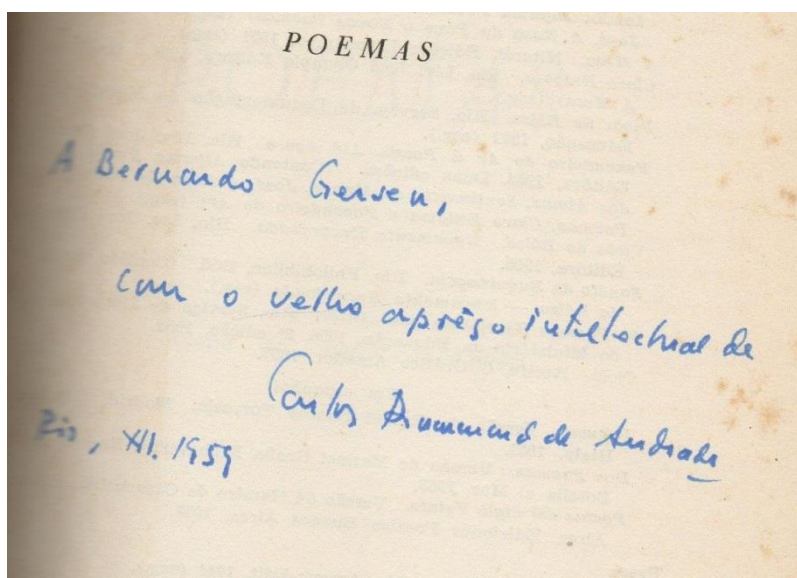 POEMAS
A Bernardo Gersen,
com o velho aprêço intelectual de
Carlos Drummond de Andrade
Rio, XII. 1959